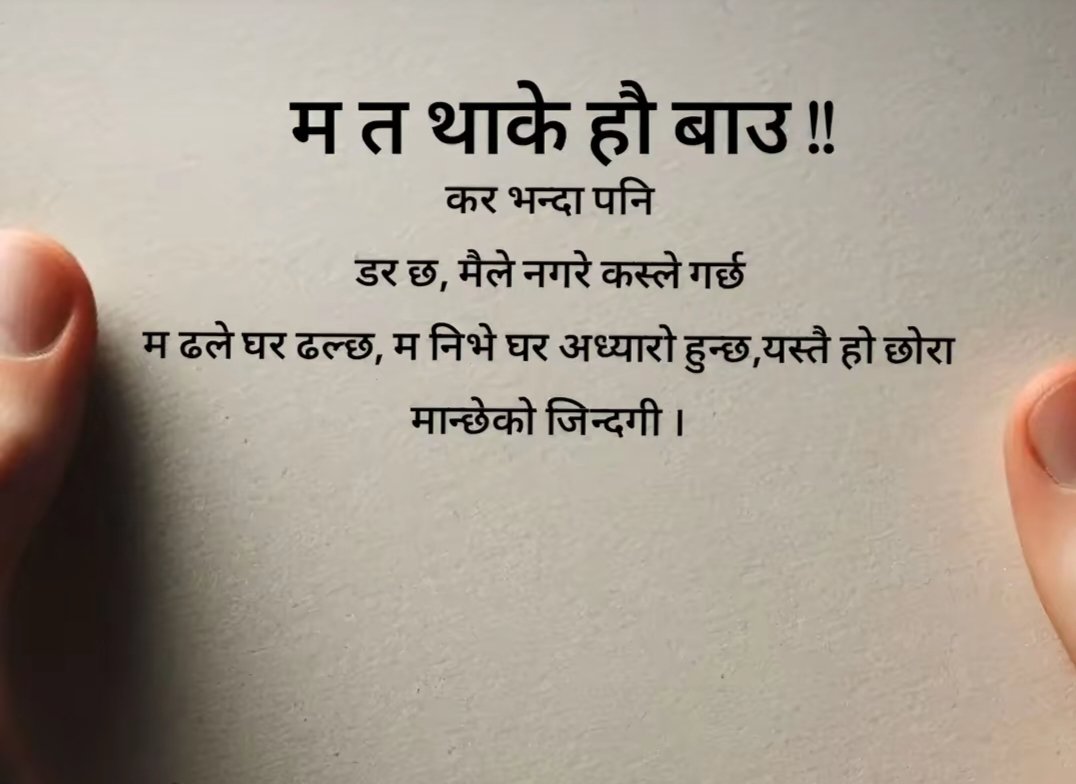 म त थाके हौ बाउ !!
कर भन्दा पनि
डर छ, मैले नगरे कस्ले गर्छ
म ढले घर ढल्छ, म निभे घर अध्यारो हुन्छ,यस्तै हो छोरा
मान्छेको जिन्दगी ।